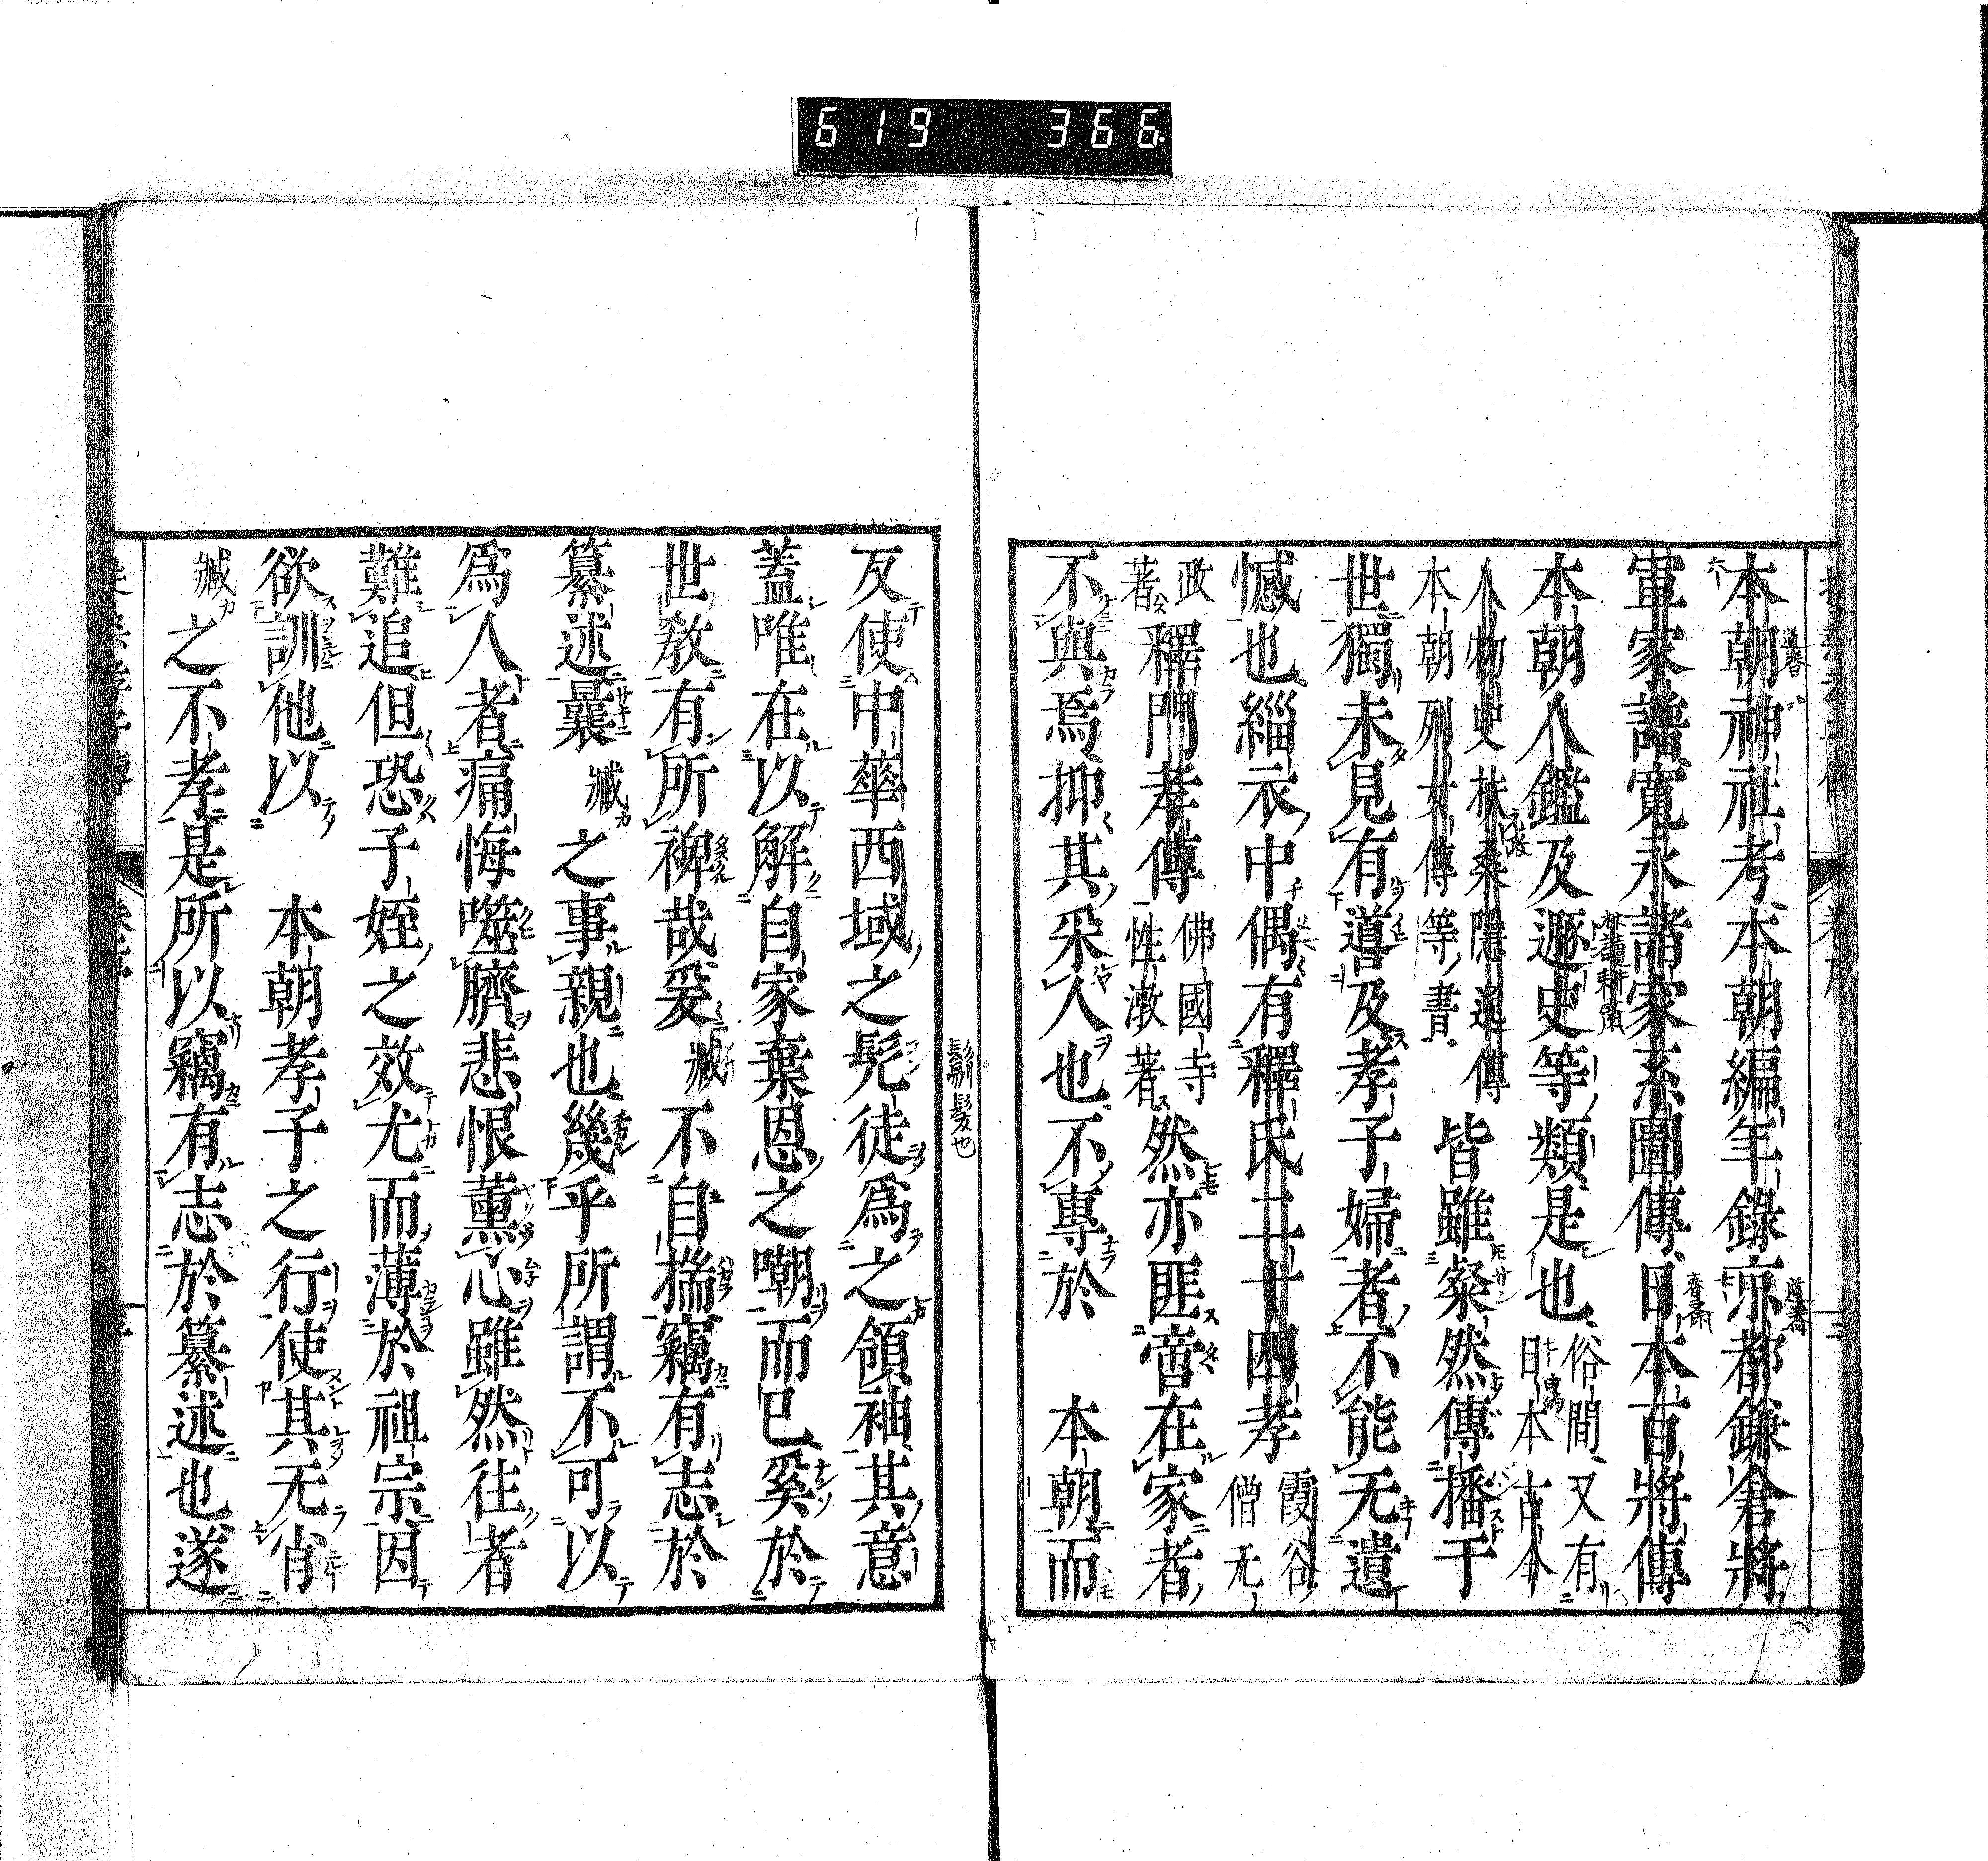 619 366
本朝神社考本朝編年錄京都鎌倉將
軍家譜寬永諸家系圖傳日本百將傳
本朝人鑑及遯史等類是也俗間又有日本古今
人物史扶桑隱逸傳本朝列女傳等書皆雖粲然傳播于
世獨未見有導及孝子婦者不能无遺
憾也緇衣中偶有釋氏二十四孝霞谷僧元
政著釋門孝傳佛國寺性潡著然亦匪啻在家者
不與焉抑其采人也不專於 本朝而
反使中華西域之髡徒爲之領袖其意
蓋唯在以解自家棄恩之嘲而已奚於
世敎有所裨哉爰臧不自揣竊有志於
纂述曩臧之事親也幾乎所謂不可以
爲人者痛悔噬臍悲恨薰心雖然往者
難追但恐子姪之效尤而薄於祖宗因
欲訓他以 本朝孝子之行使其无肖
臧之不孝是所以竊有志於纂述也遂
鬎髮也
道春
道春
春齋
林讀耕齋
元政